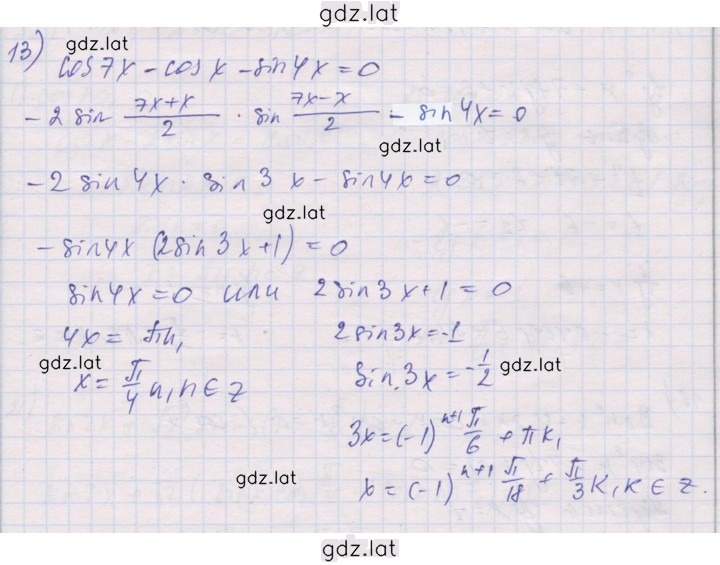 gdz.lat
13) gdz.lat
cos7x - cosx - sin4x = 0
-2 sin (7x+x)/2 · sin (7x-x)/2 - sin4x = 0
gdz.lat
-2 sin4x · sin3x - sin4x = 0
gdz.lat
-sin4x (2sin3x+1) = 0
sin4x = 0 или 2sin3x+1 = 0
4x = πn, 2sin3x = -1
gdz.lat
x = π/4 n, n ∈ z sin3x = -1/2 gdz.lat
3x = (-1)^(n+1) π/6 + πk,
gdz.lat x = (-1)^(n+1) π/18 + π/3 k, k ∈ z.
gdz.lat